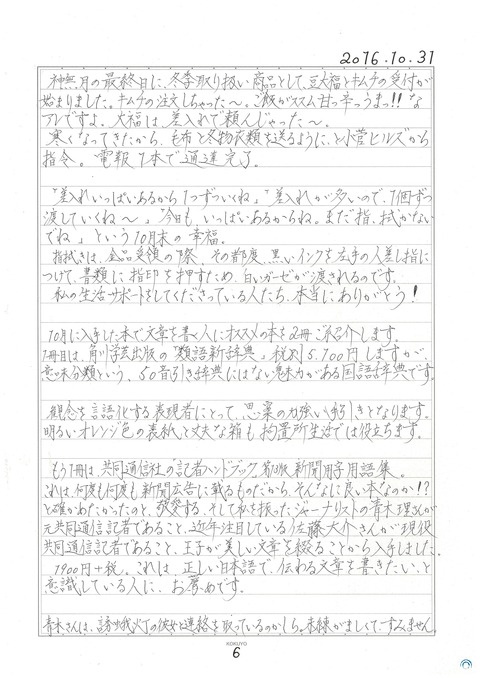 2016.10.31
神無月の最終日に、冬季取り扱い商品として、豆大福とキムチの受付が
始まりました。キムチの注文しちゃった〜。ご飯がススム甘っ辛っうまっ!!な
アレですよ、大福は差入れで頼んじゃった〜。
寒くなってきたから、毛布と冬物衣類を送るように、と小菅ヒルズから
指令。電報1本で通達完了。
「差入れいっぱいあるから1つずついくね」「差入れが多いので、1個ずつ
渡していくね〜」「今日も、いっぱいあるからね。まだ指、拭かない
でね」という10月末の幸福。
指拭きは、金品受領の際、その都度、黒いインクを左手の人差し指に
つけて、書類に指印を押すため、白いガーゼが渡されるのです。
私の生活サポートをしてくださっている人たち、本当にありがとう!
10月に入手した本で文章を書く人にオススメの本を2冊ご紹介します。
1冊目は、角川学芸出版の「類語新辞典」税別5,700円しますが、
意味分類という、50音引き辞典にはない魅力がある国語辞典です。
観念を言語化する表現者にとって、思案の力強い手引きとなります。
明るいオレンジ色の表紙と丈夫な箱も拘置所生活では役立ちます。
もう1冊は、共同通信社の「記者ハンドブック 第13版 新聞用字用語集。
これは、何度も何度も新聞広告に載るものだから、そんなに良い本なのか!?
と確かめたかったのと、敬愛する、そして私を扱ったジャーナリストの青木理さんが
元共同通信記者であること、近年注目している佐藤大介さんが現役
共同通信記者であること、王子が美しい文章を綴ることから入手しました。
1900円+税。これは、正しい日本語で、伝わる文章を書きたい、と
意識している人に、お薦めです。
青木さんは、誘蛾灯の彼女と連絡を取っているのかしら。未練がましくて、すみません。
KOKUYO
6